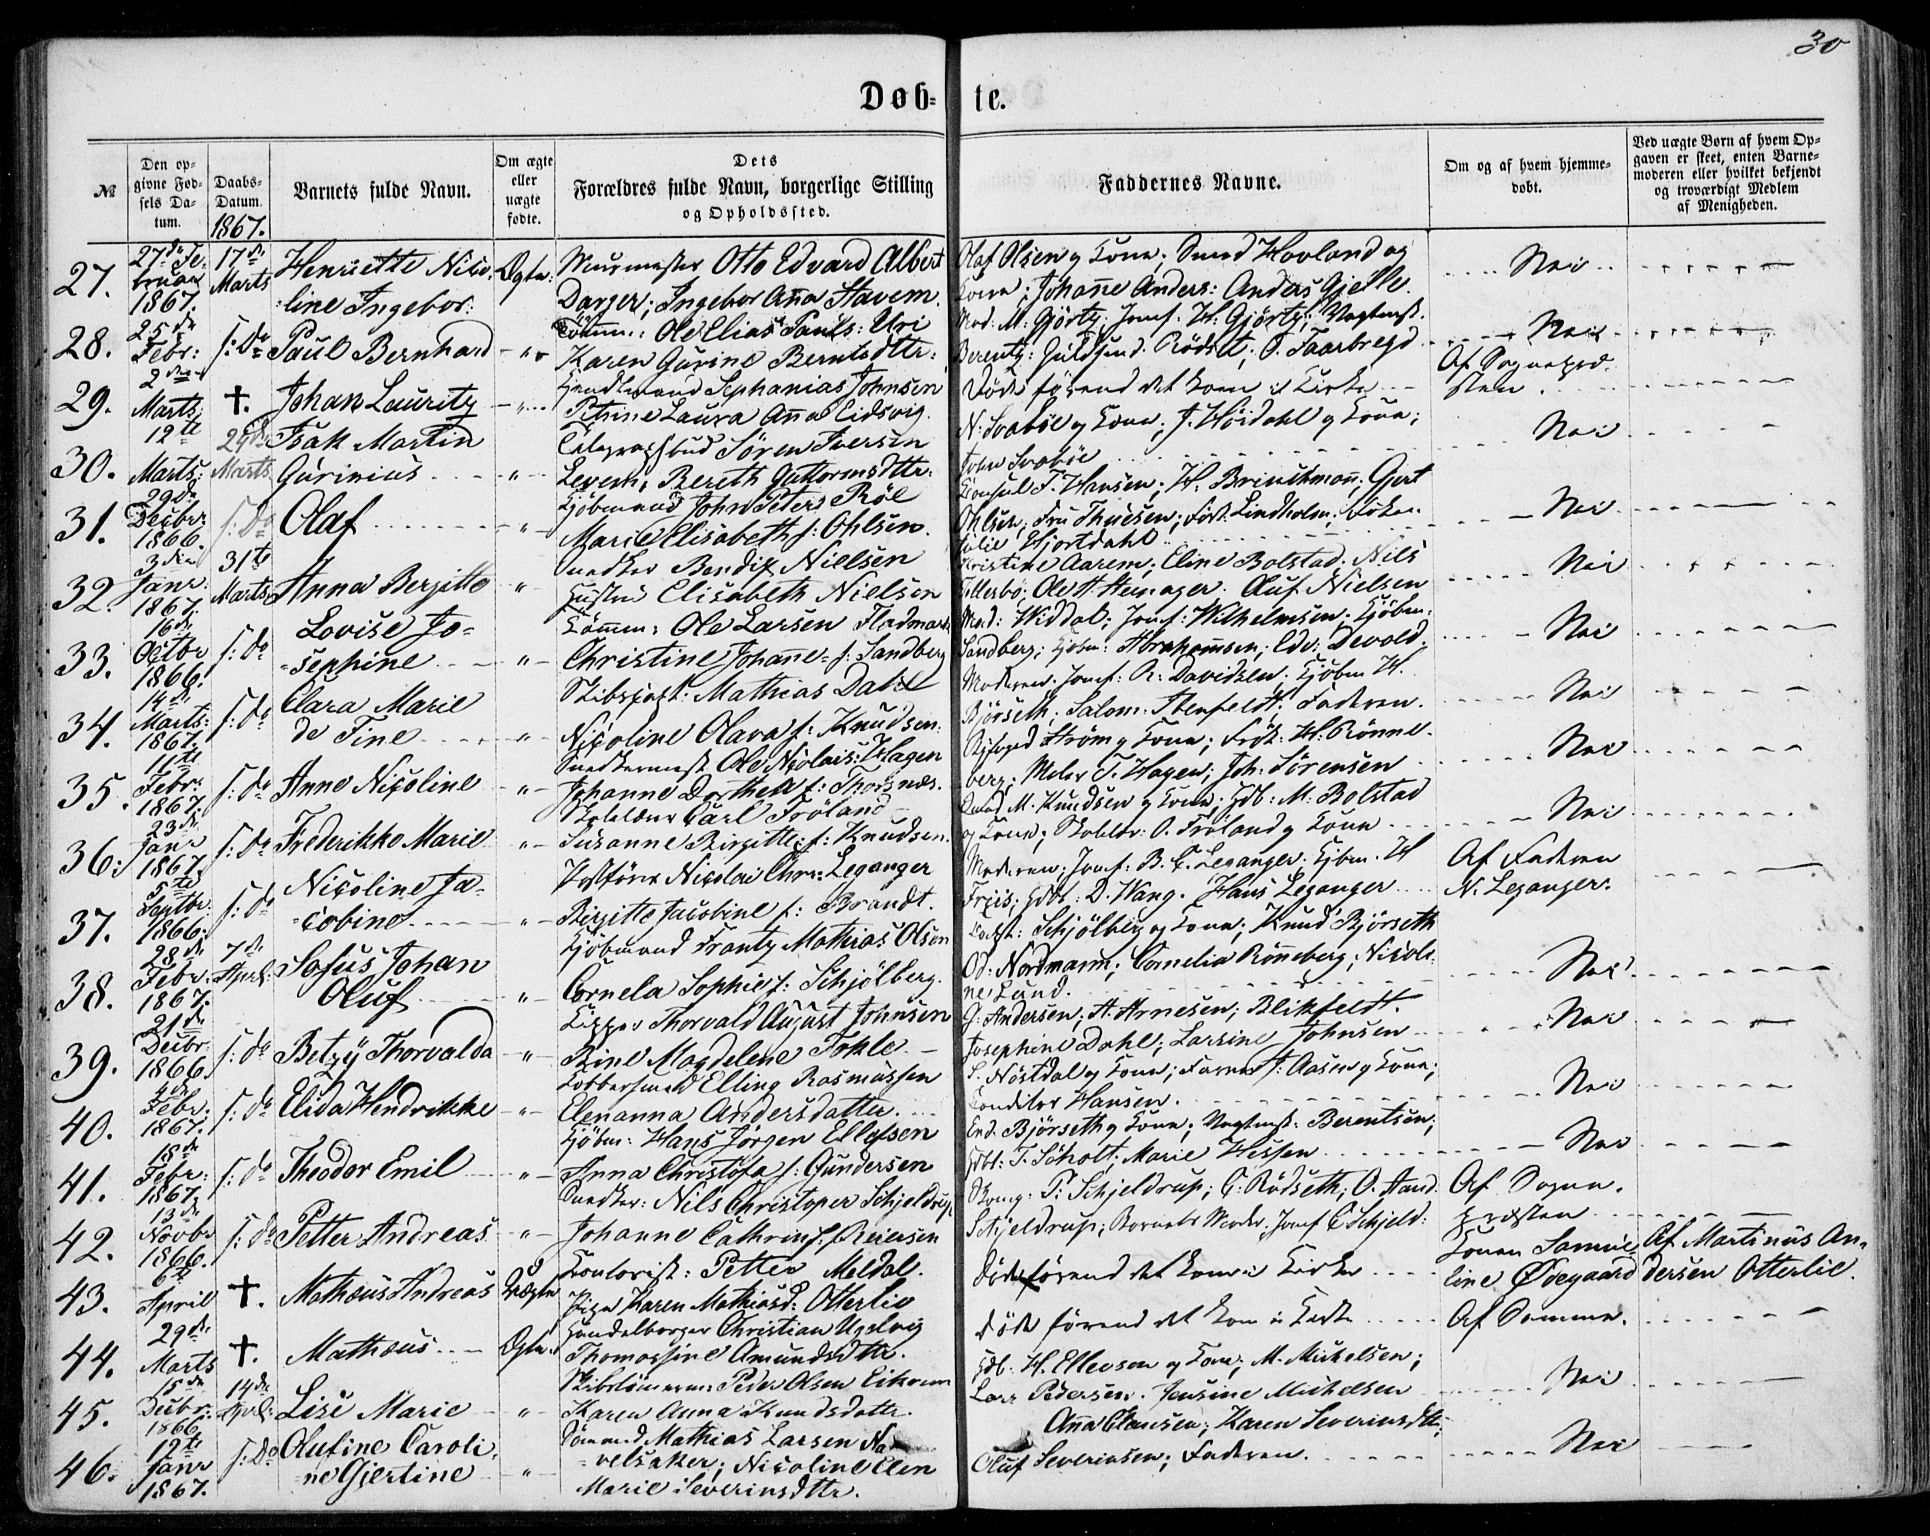 30
Døb- te.
№
Den op-
givne Fød-
sels Da-
tum.
Daabs-
Datum.
1867.
Barnets fulde Navn.
Om ægte
eller
uægte
fødte.
Dets
Forældres fulde Navn, borgerlige Stilling
og Opholdssted.
Faddernes Navne.
Om og af hvem hjemme-
døbt.
Ved uægte Børn af hvem Op-
gaven er skeet, enten Barne-
moderen eller hvilket bekjendt
og troværdigt Medlem
af Menigheden.
27.
27de Fe-
bruar
1867.
17de
Marts
Henriette Nico-
line Ingebor:
Ægte.
Murmester Otto Edvard Albert
Darger; Ingebor Anna Havem.
Olaf Olsen og Kone; Hovland og
Kone; Johanne Anders: Anders Gjelle.
Nei
28.
25de
Febr:
s: D:
Paul Bernhard
Tømm: Ole Elias Pauls: Uri
Karen Gurine Berntsdttr;
Mad. M. Gjørtz; Jomf. H. Gjørtz; Vagtmst.
Berentz: Guldsmd. Rødset; O. Taarbregd
Nei
29.
2den
Marts
†.
Johan Lauritz
Handlemand Sephanias Johnsen
Petrine Laura Anna Eidsvig.
Døde førend det kom til Kirke
Af Sognepræ-
sten.
30.
12te
Marts
24de
Marts
Isak Martin
Gurinius
Telegraphbud Søren Iversen
Levem, Bereth Guttormsdttr:
N. Svabøe og Kone; J. Høidahl og Kone;
John Svabøe
Nei
31.
29de
Decbr:
1866.
s: D:
Olaf
Kjøbmand John Peter Røe
Marie Elisabeth f: Ohlsen.
Konsul T. Hansen; H. Brinchmann; Gjert
Ohlsen; Fru Thuesen; Frøk. Lindholm; Frøken
Julie Hjortdahl
Nei
32.
3den
Janr:
1867.
31te
Marts
Anna Bergitte
Snedker Bendix Nielsen
Hustru Elisabeth Nielsen
Kristine Aarem; Eline Bolstad: Nils
Ole H. Heinager. Oluf Nielsen
Nei
33.
16de
Octbr
1866.
s: D:
Lovise Jo-
sephine
Tømm: Ole Larsen Flodmark
Christine Johanne f: Sandberg
Mad: Widdal; Jomf: Wilhelmsen; Kjøbm:
Sandberg; Kjøbm: Abrahamsen; Edv: Devold.
Nei
34.
14de
Marts:
1867.
s: D:
Clara Marie
de Fine
Skibskapt: Mathias Dahl
Nicoline Olava f: Knudsen.
Moderen. Jomf: R. Davidsen. Kjøbm H.
Bjørseth; Salom. Stenfeldt; Faderen.
Nei
35.
11te
Febr:
1867.
s: D:
Anne Nicoline
Snedkermest. Ole Nicolais: Hagen
Johanne Dorthea f: Thorsnæs.
Strøm og Kone; Frøk: H. Rønne-
berg; Maler T. Hagen; Joh: Sørensen
Nei
36.
23de
Janr
1867.
s: D:
Frederikke Marie
Skolelærer Carl Frøland
Susanne Birgitte f: Knudsen.
M. Knudsen og Kone; Gdb: M. Bolstad
og Kone; Skolelær: O. Frøland og Kone
Nei
37.
5te
Septbr.
1866.
s: D:
Nicoline Ja-
cobine
Postfører Nicolai Chr: Leganger
Birgitte Jacobine f: Brandt.
Moderen; Jomf: B. C. Leganger. Kjbm. H
Friis; Gdbr: D. Wang. Hans Leganger
Af Faderen
N. Leganger.
38.
28de
Febr:
1867.
7de
April:
Sofus Johan
Oluf
Kjøbmand Frantz Mathias Olsen
Cornela Sophie f: Schjølberg.
Kapt: Schjølberg og Kone; Knud Bjørseth
Od: Nordmann; Cornelia Rønneberg; Nicoli-
ne Lund.
Nei
39.
21de
Decbr.
1866.
s: D:
Betzy Thorvalda
Skipper Thorvald August Johnsen
Rine Magdelene Tokle
G: Andersen; A. Arnesen; Blikfeldt.
Josephine Dahl; Larsine Johnsen
Nei
40.
4de
Febr:
1867.
s: D:
Elida Hendrikke
Kobbersmed Elling Rasmussen
Elenanna Andersdatter.
S. Nøstdal og Kone; Farver J: Aasen og Kone;
Konditor Hansen.
Nei
41.
18de
Febr:
1867.
s: D:
Theodor Emil
Kjøbm: Hans Jørgen Ellefsen
Anna Christofa f: Gundersen
End. Bjørseth og Kone; Vagtmst: Berentsen;
Gdbr: T. Scholt; Marie Hessen
Nei
42.
13de
Novbr
1866.
s: D:
Petter Andreas
Snedker: Nils Christoper Schjeldrup
Johanne Cathrin f: Reiersen
Skomg: P: Schjeldrup; C: Rødseth; O. Aand:
Schjeldrup; Barnets Moder. Jomf C Schjeld:
Af Sogne-
præsten
43.
6te
April
†.
Mathæus Andreas
Uægte
Kontorist: Petter Meldal.
Pige Karen Mathiasd: Otterlie
Døde førend det kom i Kirke
Konen Samue-
line Ødegaard
Af Martinus An-
dersen Otterlie.
44.
29de
Marts
†.
Mathæus
Ægte.
Handelborger Christian Ugelvig
Thomassine Amundsdttr.
døde førend det kom i Kirke
Af Samme.
45.
15de
Decbr:
1866.
14de
April:
Lise Marie
Skibstømerm: Peder Olsen Eikrem
Karen Anna Knudsdattr.
Gdb. H. Ellevsen og Kone; M. Mickelsen;
Lars Pedersen. Jensine Michelsen
Nei
46.
12te
Janr
1867.
s: D:
Olufine Caroli-
ne Gjertine
Sømand Mathias Larsen Na-
velsaker; Nicoline Elen
Marie Severinsdttr.
Anna Clausen; Karen Severinsdttr;
Oluf Severinsen; Faderen.
Nei